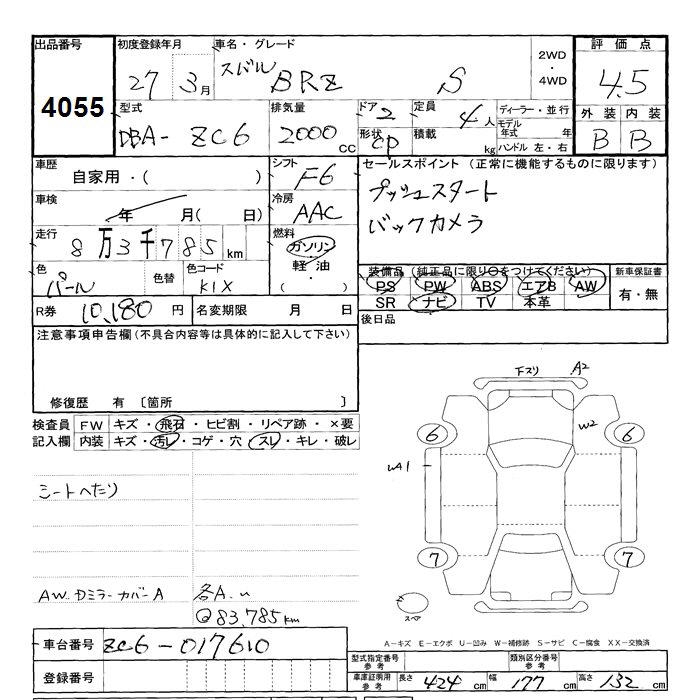 出品番号 初度登録年月 車名・グレード 2WD・4WD 評価点
4055 27 3月 スバル BRZ S 4.5
型式 排気量 ドア 2 定員 4人 ディーラー・並行 外装 内装
DBA- ZC6 2000cc 形状 CP 積載 kg モデル年式 年 ハンドル 左・右 B B
車歴 自家用・( ) シフト F6 セールスポイント (正常に機能するものに限ります)
車検 年 月( 日) 冷房 AAC プッシュスタート
バックカメラ
走行 8万3千785km 燃料 ガソリン・軽油・( )
色 パール 色替 色コード K1X
装備品 (純正品に限り○をつけてください) 新車保証書
PS PW ABS エアB AW 有・無
SR ナビ TV 本革
R券 10,180円 名変期限 月 日 後日品
注意事項申告欄(不具合内容等は具体的に記入して下さい)
修復歴 有 〔箇所 〕
検査員記入欄 FW キズ・飛石・ヒビ割・リペア跡・×要
内装 キズ・汚レ・コゲ・穴・スレ・キレ・破レ
シートへたり
下スリ A2
6 W2 6
WA1
7 7
スペア
AW.Dミラーカバー A 各A.U
@83,785km
A-キズ E-エクボ U-凹み W-補修跡 S-サビ C-腐食 XX-交換済
車台番号 ZC6-017610
型式指定番号 参考 類別区分番号 参考
登録番号
車庫証明用 参考 長さ 424cm 幅 177cm 高さ 132cm